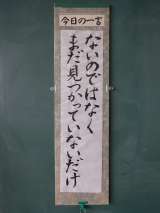 今日の一言
ないのではなく
まだ見つかっていないだけ